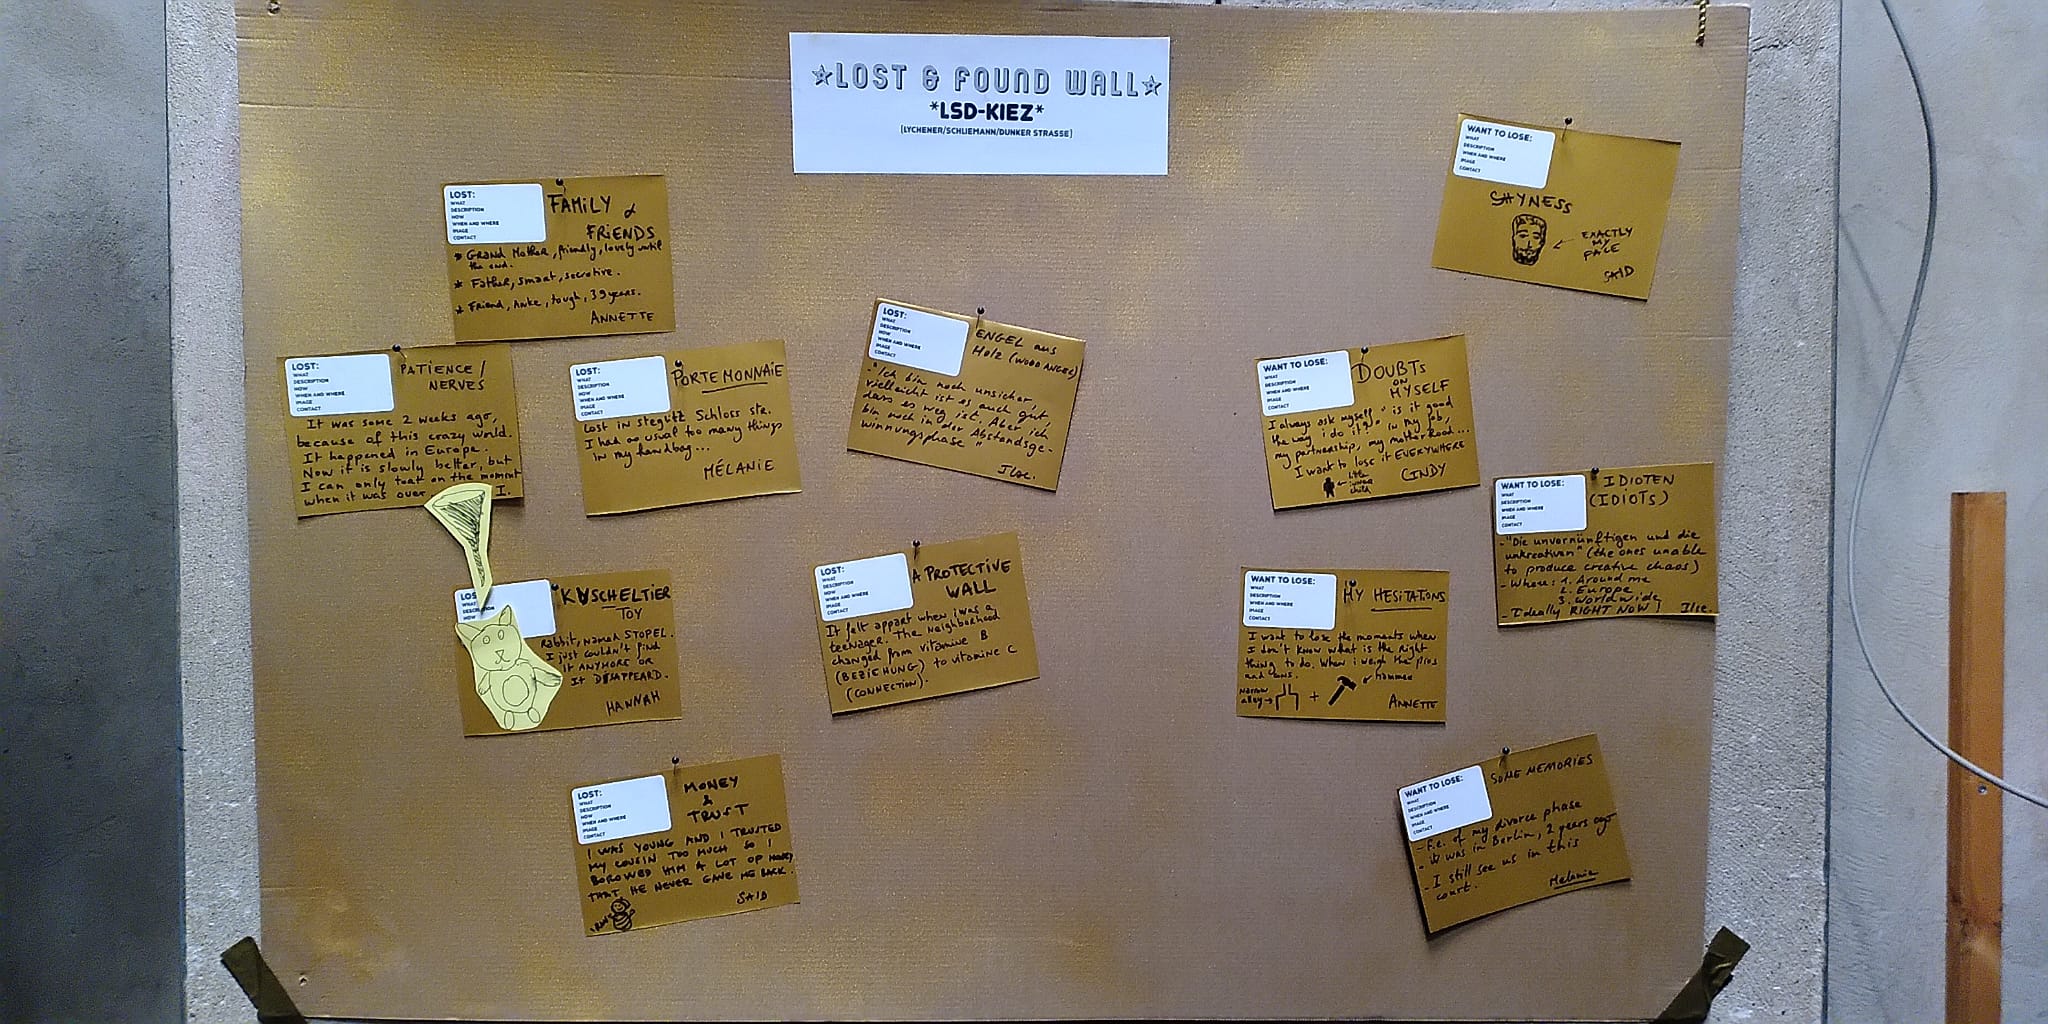 ☆LOST & FOUND WALL☆
*LSD-KIEZ*
[LYCHENER/SCHLIEMANN/DUNKER STRASSE]
LOST:
WHAT
DESCRIPTION
HOW
WHEN AND WHERE
IMAGE
CONTACT
FAMILY &
FRIENDS
* GRAND MOTHER, friendly, lovely until
the end.
* Father, smart, secretive.
* Friend, Anke, tough, 39 years.
ANNETTE
LOST:
WHAT
DESCRIPTION
HOW
WHEN AND WHERE
IMAGE
CONTACT
PATIENCE /
NERVES
It was some 2 weeks ago,
because of this crazy world.
It happened in Europe.
Now it is slowly better, but
I can only toast on the moment
when it was over
I.
LOST:
WHAT
DESCRIPTION
HOW
WHEN AND WHERE
IMAGE
CONTACT
PORTEMONNAIE
Lost in steglitz Schloss str.
I had as usual too many things
in my handbag...
MÉLANIE
LOST:
WHAT
DESCRIPTION
HOW
KUSCHELTIER
TOY
Rabbit, named STOPEL.
I just couldn't find
it ANYMORE OR
it DISAPPEARD.
HANNAH
LOST:
WHAT
DESCRIPTION
HOW
WHEN AND WHERE
IMAGE
CONTACT
MONEY
&
TRUST
I WAS YOUNG AND I TRUSTED
MY COUSIN TOO MUCH SO I
BOROWED HIM A LOT OF MONEY
THAT HE NEVER GAVE ME BACK.
SAID
LOST:
WHAT
DESCRIPTION
HOW
WHEN AND WHERE
IMAGE
CONTACT
ENGEL aus
Holz (WOOD ANGEL)
- "Ich bin noch unsicher,
vielleicht ist es auch gut,
dass es weg ist. Aber ich
bin noch in der Abstandsge-
winnungsphase"
Ilse.
LOST:
WHAT
DESCRIPTION
HOW
WHEN AND WHERE
IMAGE
CONTACT
A PROTECTIVE
WALL
It felt appart when i was a
teenager. The Neighborhood
changed from vitamine B
(BEZIEHUNG) to vitamine C
(CONNECTION).
WANT TO LOSE:
WHAT
DESCRIPTION
WHEN AND WHERE
IMAGE
CONTACT
SHYNESS
EXACTLY
MY
FACE
SAID
WANT TO LOSE:
WHAT
DESCRIPTION
WHEN AND WHERE
IMAGE
CONTACT
DOUBTS
ON
MYSELF
I always ask myself "is it good
the way i do it?" in my job,
my partnership, my motherhood...
I want to lose it EVERYWHERE
little
inner
child
CINDY
WANT TO LOSE:
WHAT
DESCRIPTION
WHEN AND WHERE
IMAGE
CONTACT
IDIOTEN
(IDIOTS)
- "Die unvernünftigen und die
unkreativen" (the ones unable
to produce creative chaos)
- Where: 1. Around me
2. Europe
3. Worldwide
- Ideally RIGHT NOW! Ilse.
WANT TO LOSE:
WHAT
DESCRIPTION
WHEN AND WHERE
IMAGE
CONTACT
MY HESITATIONS
I want to lose the moments when
I don't know what is the right
thing to do. When i weigh the pros
and cons.
Narrow
alley
+
hammer
ANNETTE
WANT TO LOSE:
WHAT
DESCRIPTION
WHEN AND WHERE
IMAGE
CONTACT
SOME MEMORIES
- F.e. of my divorce phase
- It was in Berlin, 2 years ago
- I still see us in this
court.
Melanie